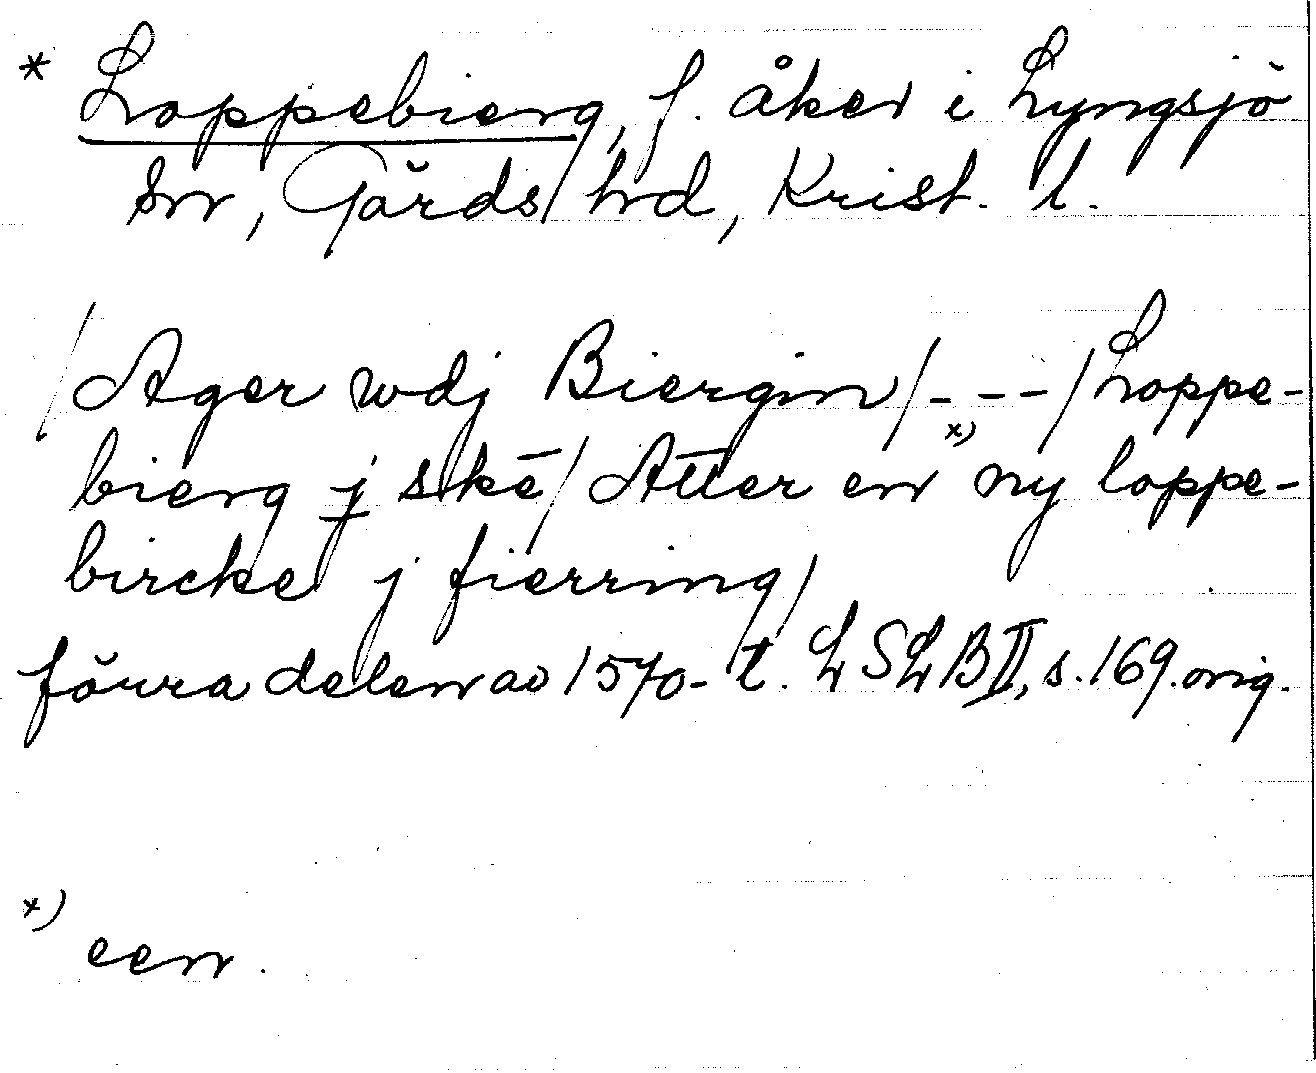 * Loppebierg, f. åker i Lyngsjö
sn, Gärds hd, Krist. l.
/Ager wdj Biergin/ - - - / Loppe-
bierg j skē/ Atter en x) ny loppe-
bircke j fierring/
förra delen av 1570-t. LSLB II, s. 169. orig.
x) een.